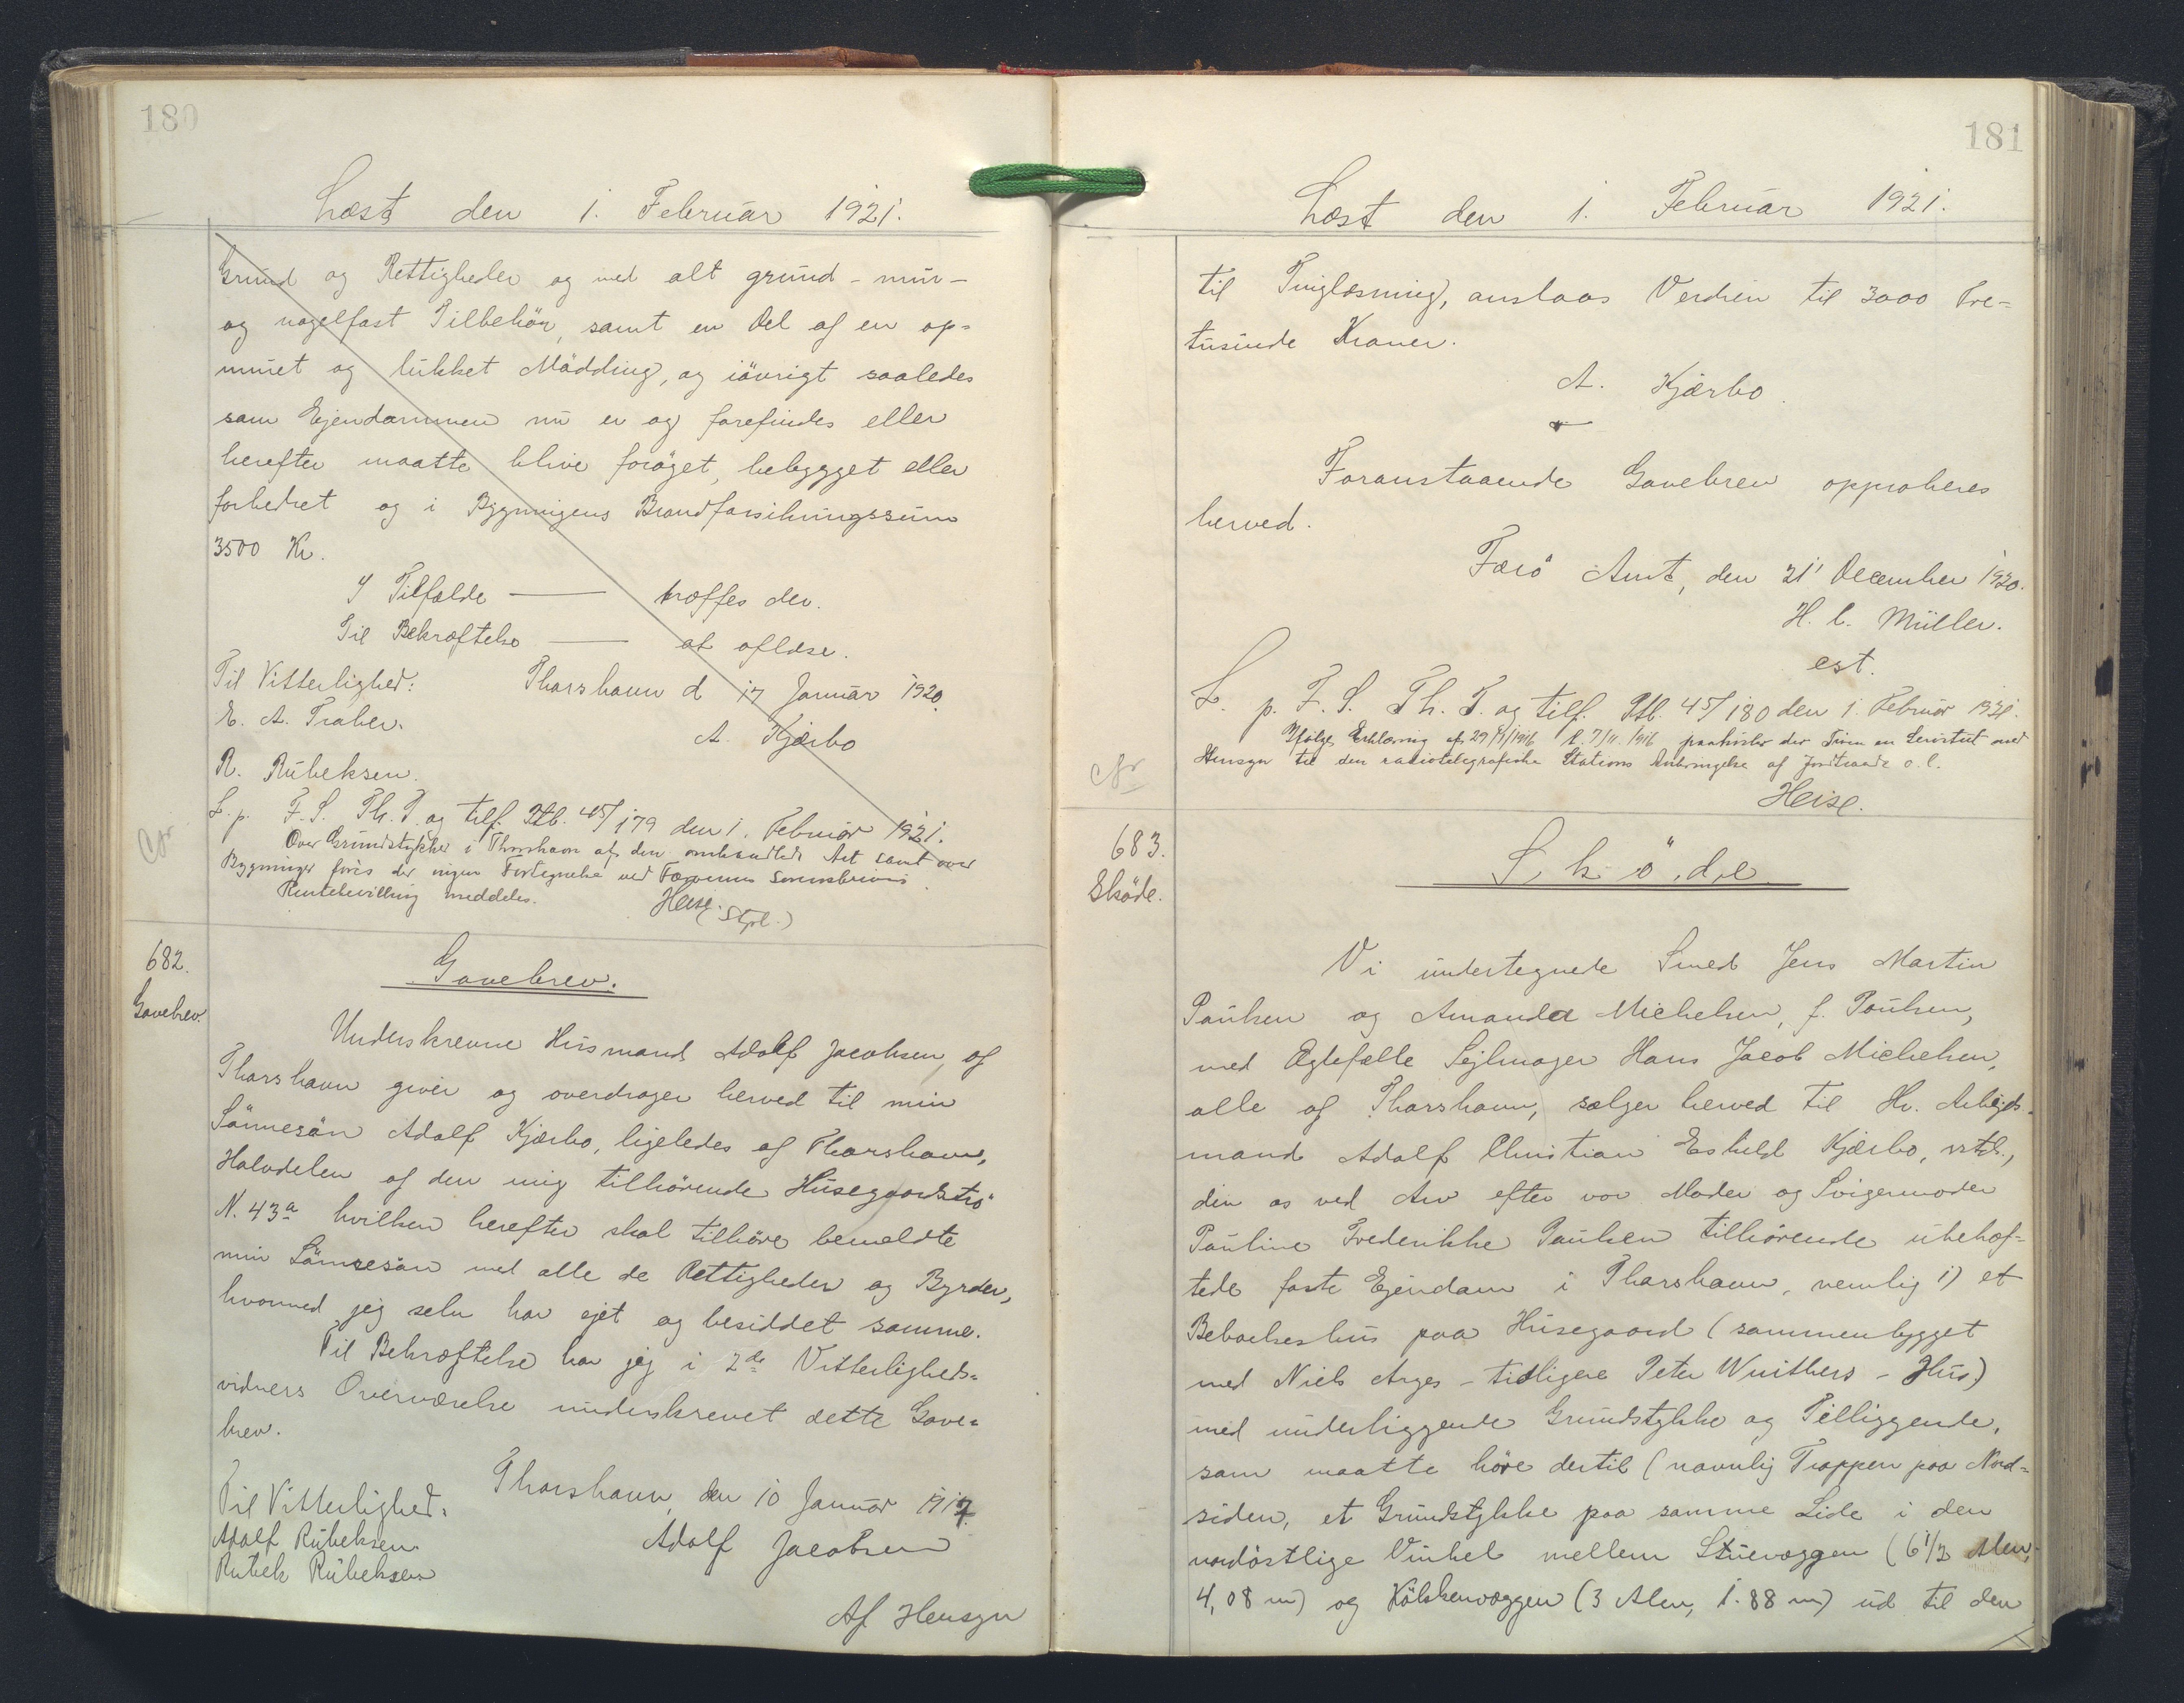 180
Læst den 1. Februar 1921.
Grund og Rettigheder og med alt grund- mur-
og nagelfast Tilbehör, samt en Del af en op=
muret og lukket Mödding, og iövrigt saaledes
som Ejendommen nu er og forefindes eller
herefter maatte blive foröget, bebygget eller
forbedret og i Bygningens Brandforsikringssum
3500 Kr.
I Tilfælde — træffes der.
Til Bekræftelse — at aflæse.
Til Vitterlighed: Thorshavn d 17 Januar 1920.
E. A. Traber. A. Kjærbo
R. Rubeksen.
L. p. F. S. Th. T. og tilf. Ptb. 45/179 den 1. Februar 1921.
Over Grundstykker i Thorshavn af den omhandlede Art samt over
Bygninger föres der ingen Fortegnelse ved Færöernes Sorenskriveri.
Rentebevilling meddeles. Heise.
(Stpl.)
Cfr.
682.
Gavebrev.
Gavebrev.
Underskrevne Husmand Adolf Jacobsen, af
Thorshavn giver og overdrager herved til min
Sönnesön Adolf Kjærbo, ligeledes af Thorshavn,
Halvdelen af den mig tilhörende Husegaardströ
N. 43a hvilken herefter skal tilhöre bemeldte
min Sönnesön med alle de Rettigheder og Byrder,
hvormed jeg selv har ejet og besiddet samme.
Til Bekræftelse har jeg i 2de Vitterligheds=
vidners Overværelse underskrevet dette Gave=
brev.
Thorshavn, den 10 Januar 1917.
Til Vitterlighed:
Adolf Rubeksen. Adolf Jacobsen
Rubek Rubeksen
Af Hensyn
181
Læst den 1. Februar 1921.
til Tinglæsning, anslaas Verdien til 3000 Tre=
tusinde Kroner.
A. Kjærbo.
Foranstaaende Gavebrev approberes
herved.
Færö Amt, den 21' December 1920.
H. C. Müller.
est.
L. p. F. S. Th. T. og tilf. Ptb. 45/180 den 1. Februar 1921.
Ifölge Erklæring af 29/9/1916 l. 7/11. 1916 paahviler der Tröen en Servitut med
Hensyn til den radiotelegrafiske Stations Anbringelse af Jordtraade o. l.
Heise.
cfr
683.
Sköde.
Sköde.
Vi undertegnede Smed Jens Martin
Poulsen og Amanda Michelsen, f. Poulsen,
med Ægtefælle Sejlmager Hans Jacob Michelsen,
alle af Thorshavn, sælger herved til Hr. Arbejds-
mand Adolf Christian Eskild Kjærbo, sstds.,
den os ved Arv efter vor Moder og Svigermoder
Pauline Frederikke Poulsen tilhörende ubehæf=
tede faste Ejendom i Thorshavn, nemlig 1) et
Beboelseshus paa Husegaard (sammenbygget
med Niels Arges - tidligere Peter Wuithers - Hus)
med underliggende Grundstykke og Tilliggende,
som maatte höre dertil (navnlig Trappen paa Nord=
siden, et Grundstykke paa samme Side i den
nordöstlige Vinkel mellem Stuevæggen (6 1/2 Alen,
4,08 m) og Kökkenvæggen (3 Alen, 1.88 m) ud til den